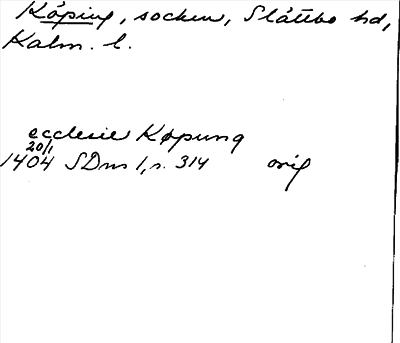 Köping, socken, Slättbo hd,
Kalm. l.
ecclesie Køpung
20/1
1404 SDns 1, s. 314 orig